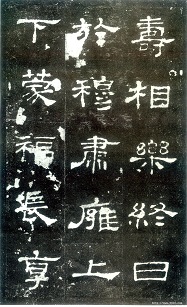 壽相樂終日
於穆肅廱上
下蒙福長享